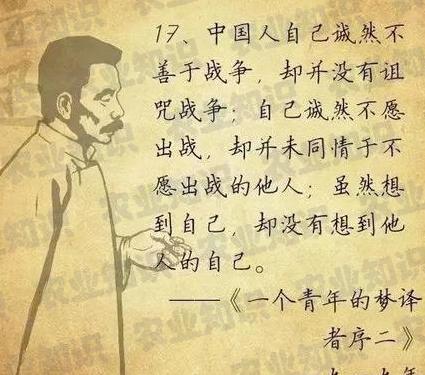 17、中国人自己诚然不
善于战争，却并没有诅
咒战争；自己诚然不愿
出战，却并未同情于不
愿出战的他人；虽然想
到自己，却没有想到他
人的自己。
——《一个青年的梦译
者序二》